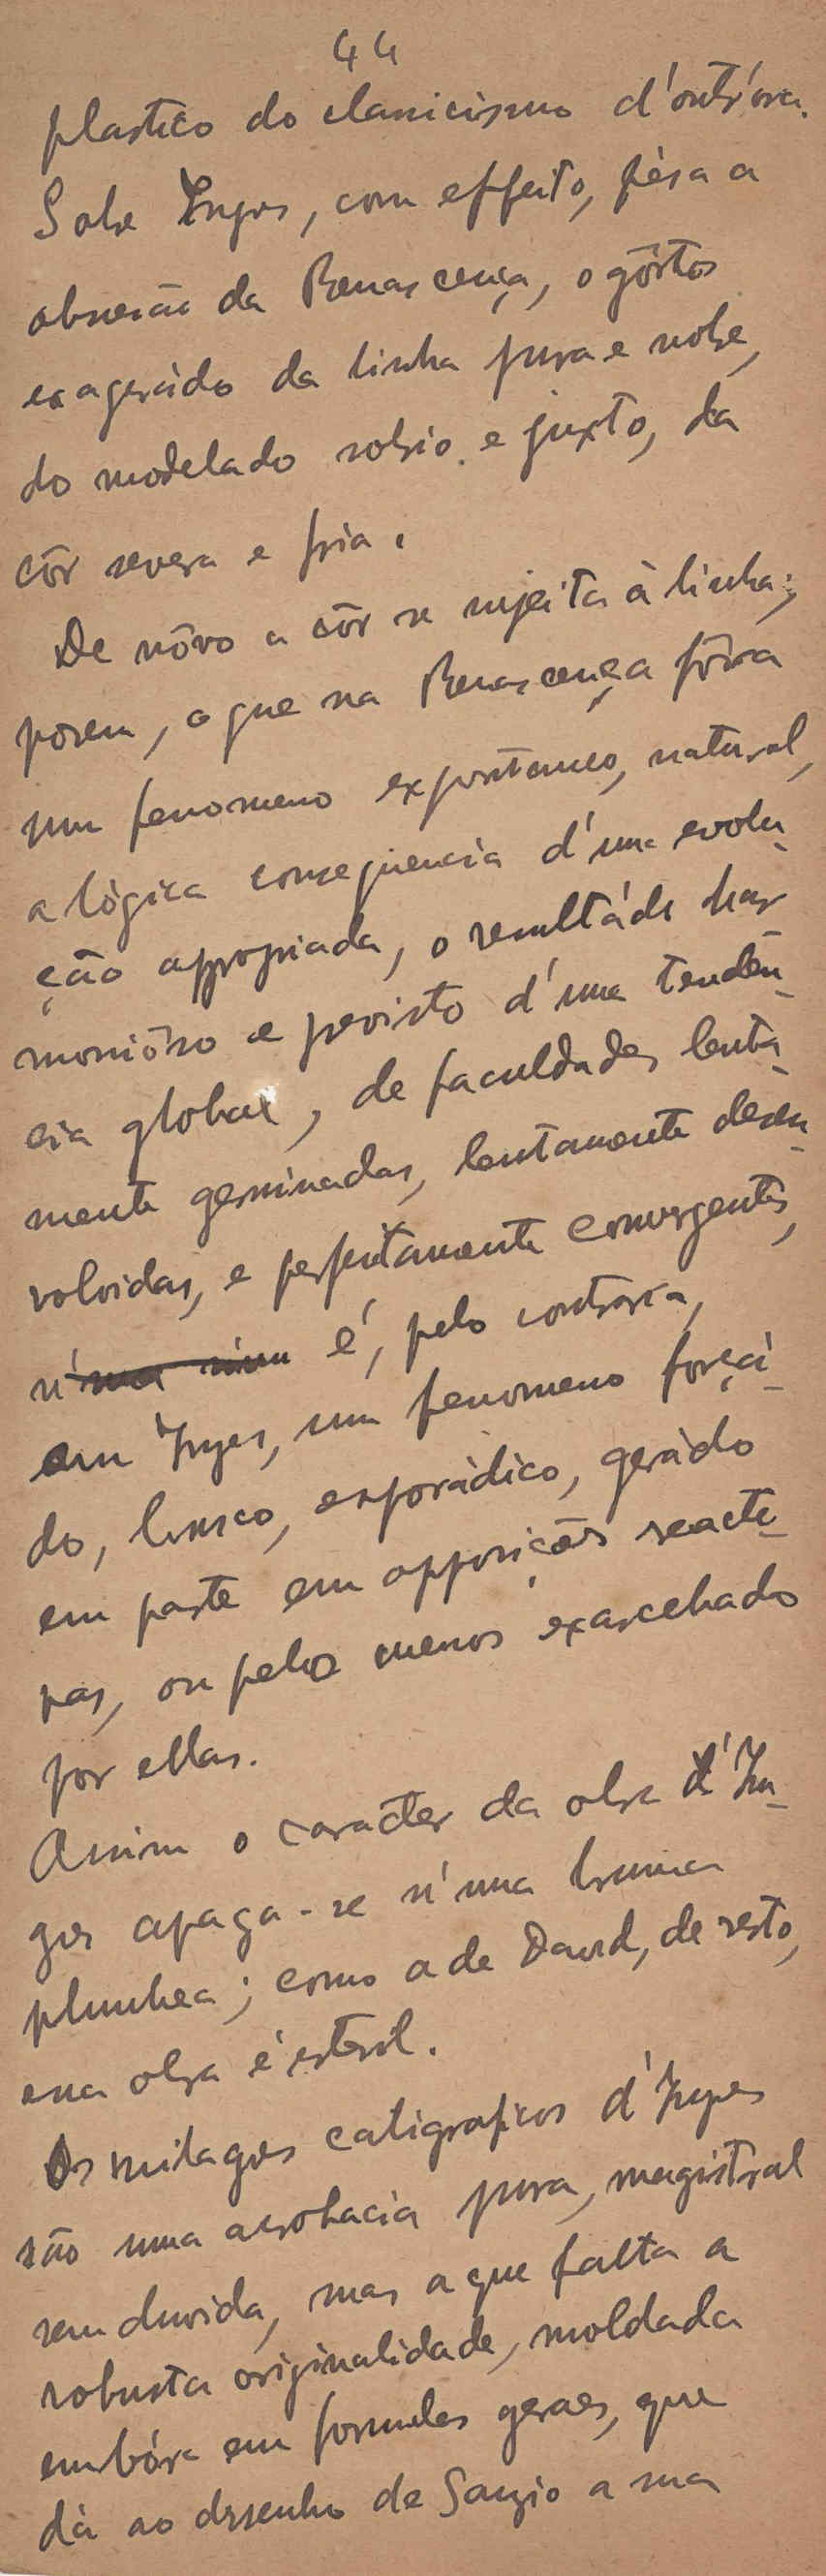 44
plastico do classicismo d'outr'óra.
Sobre Ingres, com effeito, pésa a
obsessão da Renascença, o gôsto
exagerádo da linha pura e nobre,
do modelado sobrio e justo, da
côr severa e fria.
De nôvo a côr se sujeita à linha;
porem, o que na Renascença fôra
um fenomeno expontaneo, natural,
a lógica consequencia d'uma evolu-
ção appropriada, o resultádo har
moniôso e previsto d'uma tendên-
cia global, de faculdades lenta-
mente germinadas, lentamente desen-
volvidas, e perfeitamente convergentes,
é, pelo contrario,
em Ingres, um fenomeno forçá-
do, brusco, esporádico, gerádo
em parte em opposições reacti-
vas, ou pelo menos exarcebado
por ellas.
Assim o caracter da obra d'In-
gres apaga-se n'uma bruma
plumbea; como a de David, de resto,
essa obra é esteril.
Os milagres caligraficos d'Ingres
são uma acrobacia pura, magistral
sem duvida, mas a que falta a
robusta originalidade, moldada
embóra em formulas geraes, que
dá ao desenho de Sanzio a sua